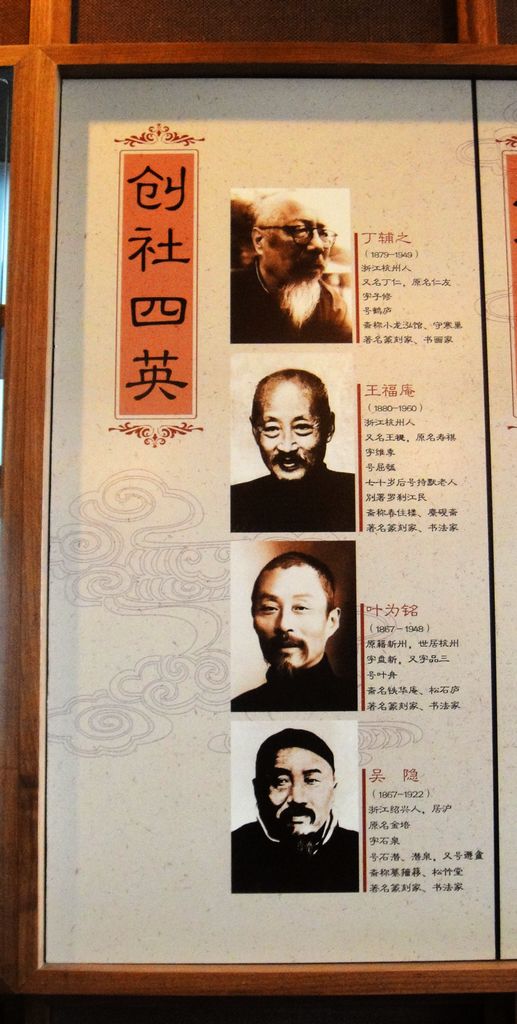 创社四英
丁辅之
（1879-1949）
浙江杭州人
又名丁仁，原名仁友
字子修
号鹤庐
斋称小龙泓馆、守寒巢
著名篆刻家、书画家
王福庵
（1880-1960）
浙江杭州人
又名王禔，原名寿祺
字维季
号屈瓠
七十岁后号持默老人
别署罗刹江民
斋称春住楼、麋砚斋
著名篆刻家、书法家
叶为铭
（1867-1948）
原籍新州，世居杭州
字盘新，又字品三
号叶舟
斋名铁华庵、松石庐
著名篆刻家、书法家
吴 隐
（1867-1922）
浙江绍兴人，居沪
原名金培
字石泉
号石潜、潜泉，又号遯盦
斋称篆籀簃、松竹堂
著名篆刻家、书法家